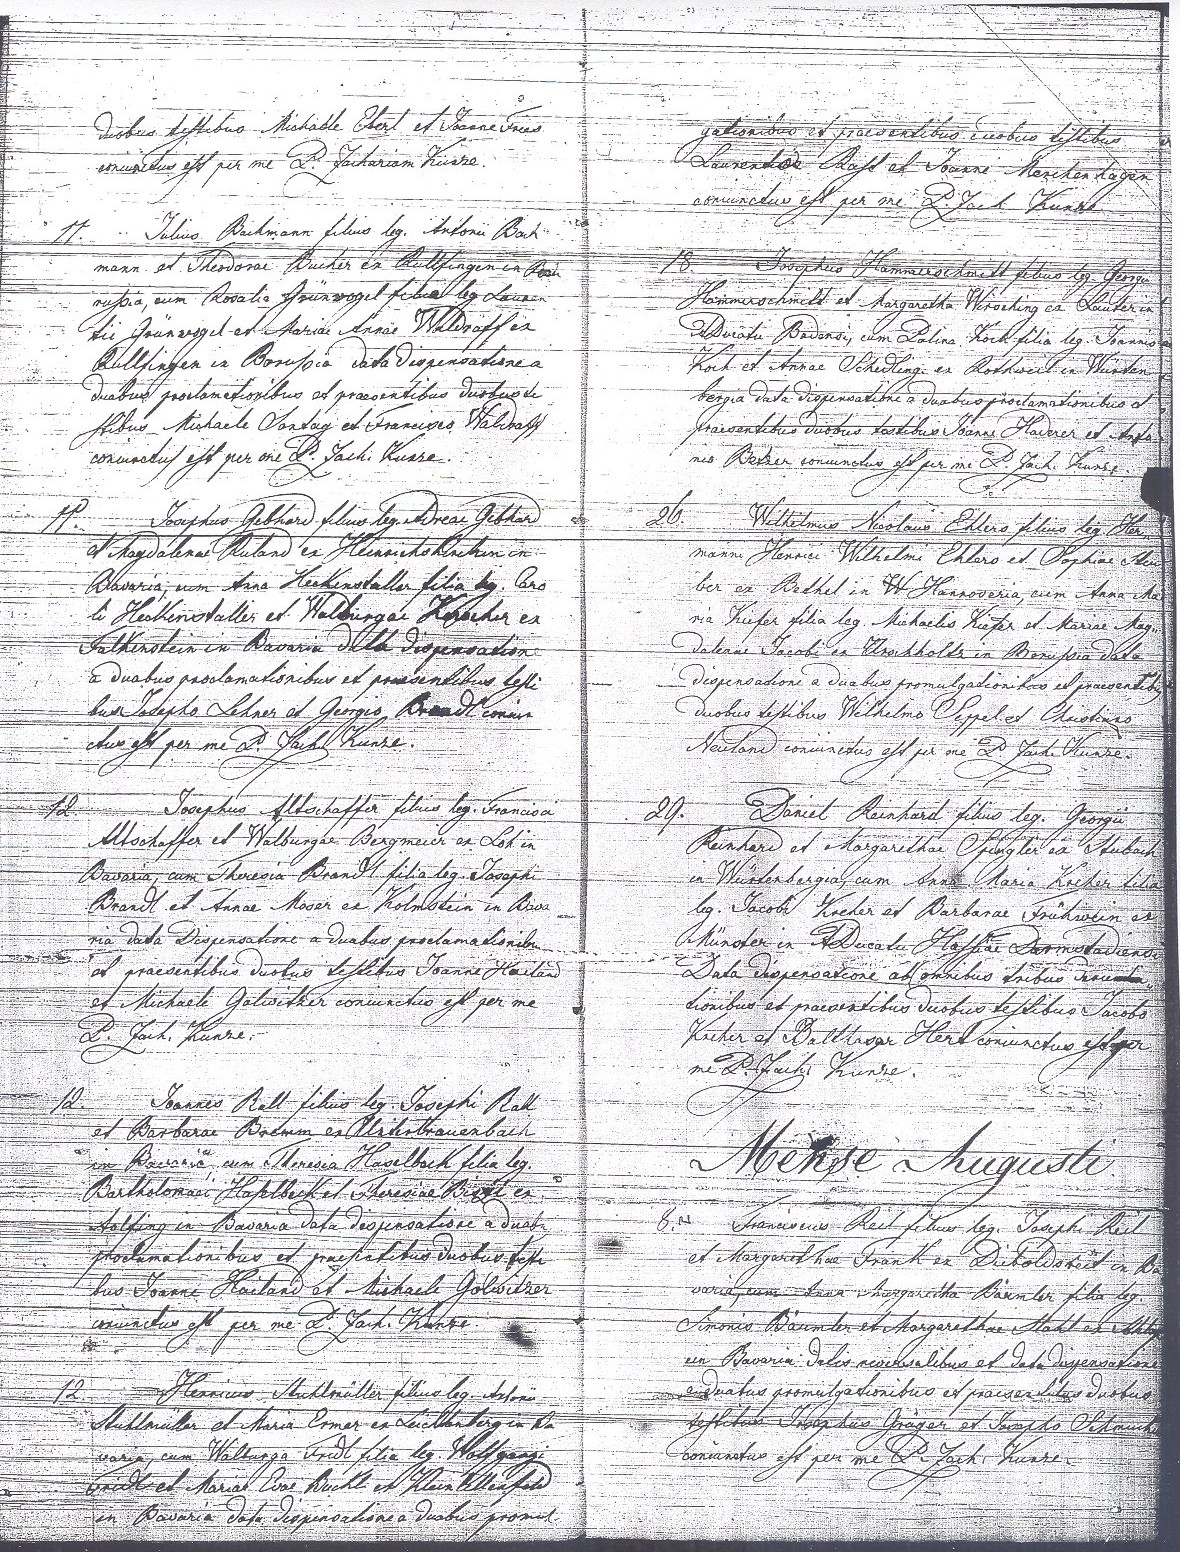 duobus testibus Michaele Ebert et Joanne Fries
coniunctus est per me P. Zachariam Kunze.
11. Julius Bachmann filius leg. Antonii Bach
mann et Theodorae Bucher ex Rulfingen in
russia, cum Rosalia Grünvogel filia leg Lauren
tii Grünvogel et Mariae Annae Waldraff ex
Rulfingen in Borussia data dispensatione a
duabus proclamationibus et praesentibus duobus te
stibus Michaele Sontag et Francisco Waldraff
coniunctus est per me P. Zach. Kunze.
11. Josephus Gebhard filius leg. Adreae Gebhard
et Magdalenae Ruland ex Heinrichskirchen in
Bavaria, cum Anna Heckenstaller filia leg. Caro
li Heckenstaller et Walburgae Karcher ex
Falkenstein in Bavaria data dispensatione
a duabus proclamationibus et praesentibus testi
bus Josepho Lehner et Georgio Brandl coniun
ctus est per me P. Zach. Kunze.
12. Josephus Altschaffer filius leg. Francisci
Altschaffer et Walburgae Bergmeier ex Loh in
Bavaria, cum Theresia Brandl filia leg. Josephi
Brandl et Annae Moser ex Kolmstein in Bava
ria data Dispensatione a duabus proclamationibu
et praesentibus duobus testibus Joanne Hailand
et Michaele Golwitzer coniunctus est per me
P. Zach. Kunze.
12. Joannes Rall filius leg. Josephi Rall
et Barbarae Bremm ex Unterbrauenbach
in Bavaria, cum Theresia Haselbeck filia leg.
Bartholomaei Haselbeck et Theresiae ex
Aolfing in Bavaria data dispensatione a duabu
proclamationibus et praesentibus duobus testi
bus Joanne Hailand et Michaele Golwitzer
coniunctus est per me P. Zach. Kunze.
12. Henricus Stuhlmüller filius leg. Antonii
Stuhlmüller et Maria Ermer ex Leuchtenberg in Ba
varia, cum Walburga Fridl filia leg. Wolfgangi
Fridl et Mariae Evae Buchl et Klein
in Bavaria data dispensatione a duabus promul
gationibus et praesentibus duobus testibus
Laurentio Rast et Joanne Merchenhagen
coniunctus est per me P. Zach Kunze
18. Josephus Hammerschmitt filius leg. Georgii
Hammerschmitt et Margaretha Wirsching ex Lauter in
Ducatu Badensi, cum Palina Koch filia leg. Joannis
Koch et Annae Schedling ex Rothweil in Würten
bergia data dispensatione a duabus proclamationibus et
praesentibus duobus testibus Joanne Haderer et Anto
nio Betzer coniunctus est per me P. Zach. Kunze.
26. Wilhelmus Nicolaus Ehlers filius leg Her
manni Henrici Wilhelmi Ehlers et Sophiae Stu
ber ex Bethel in W Hannoveria, cum Anna Ma
ria Kiefer filia leg. Michaelis Kiefer et Mariae Mag
dalenae Jacobi ex Urschholtz in Borussia data
dispensatione a duabus promulgationibus et praesentibus
duobus testibus Wilhelmo Seppel et Christiano
Neuland coniunctus est per me P. Zach. Kunze.
29. Daniel Reinhard filius leg. Georgii
Reinhard et Margarethae Spingler ex Aubach
in Würtenbergia, cum Anna Maria Kreher filia
leg. Jacobi Kreher et Barbarae Frühwein ex
Münster in Ducatu Hassiae Darmstadiensi
Data dispensatione ab omnibus tribus
tionibus et praesentibus duobus testibus Jacobo
Kreher et Balthasar Hert coniunctus est per
me P. Zach. Kunze.
Mense Augusti
8. Franciscus Reil filius leg. Josephi Reil
et Margarethae Frank ex Diboldsreit in Ba
varia, cum Anna Margaretha Bäumler filia leg.
Simonis Bäumler et Margarethae Stahl ex
in Bavaria datis reversalibus et data dispensatione
a duabus promulgationibus et praesentibus duobus
testibus Josephus Gräger et Josepho
coniunctus est per me P. Zach. Kunze.